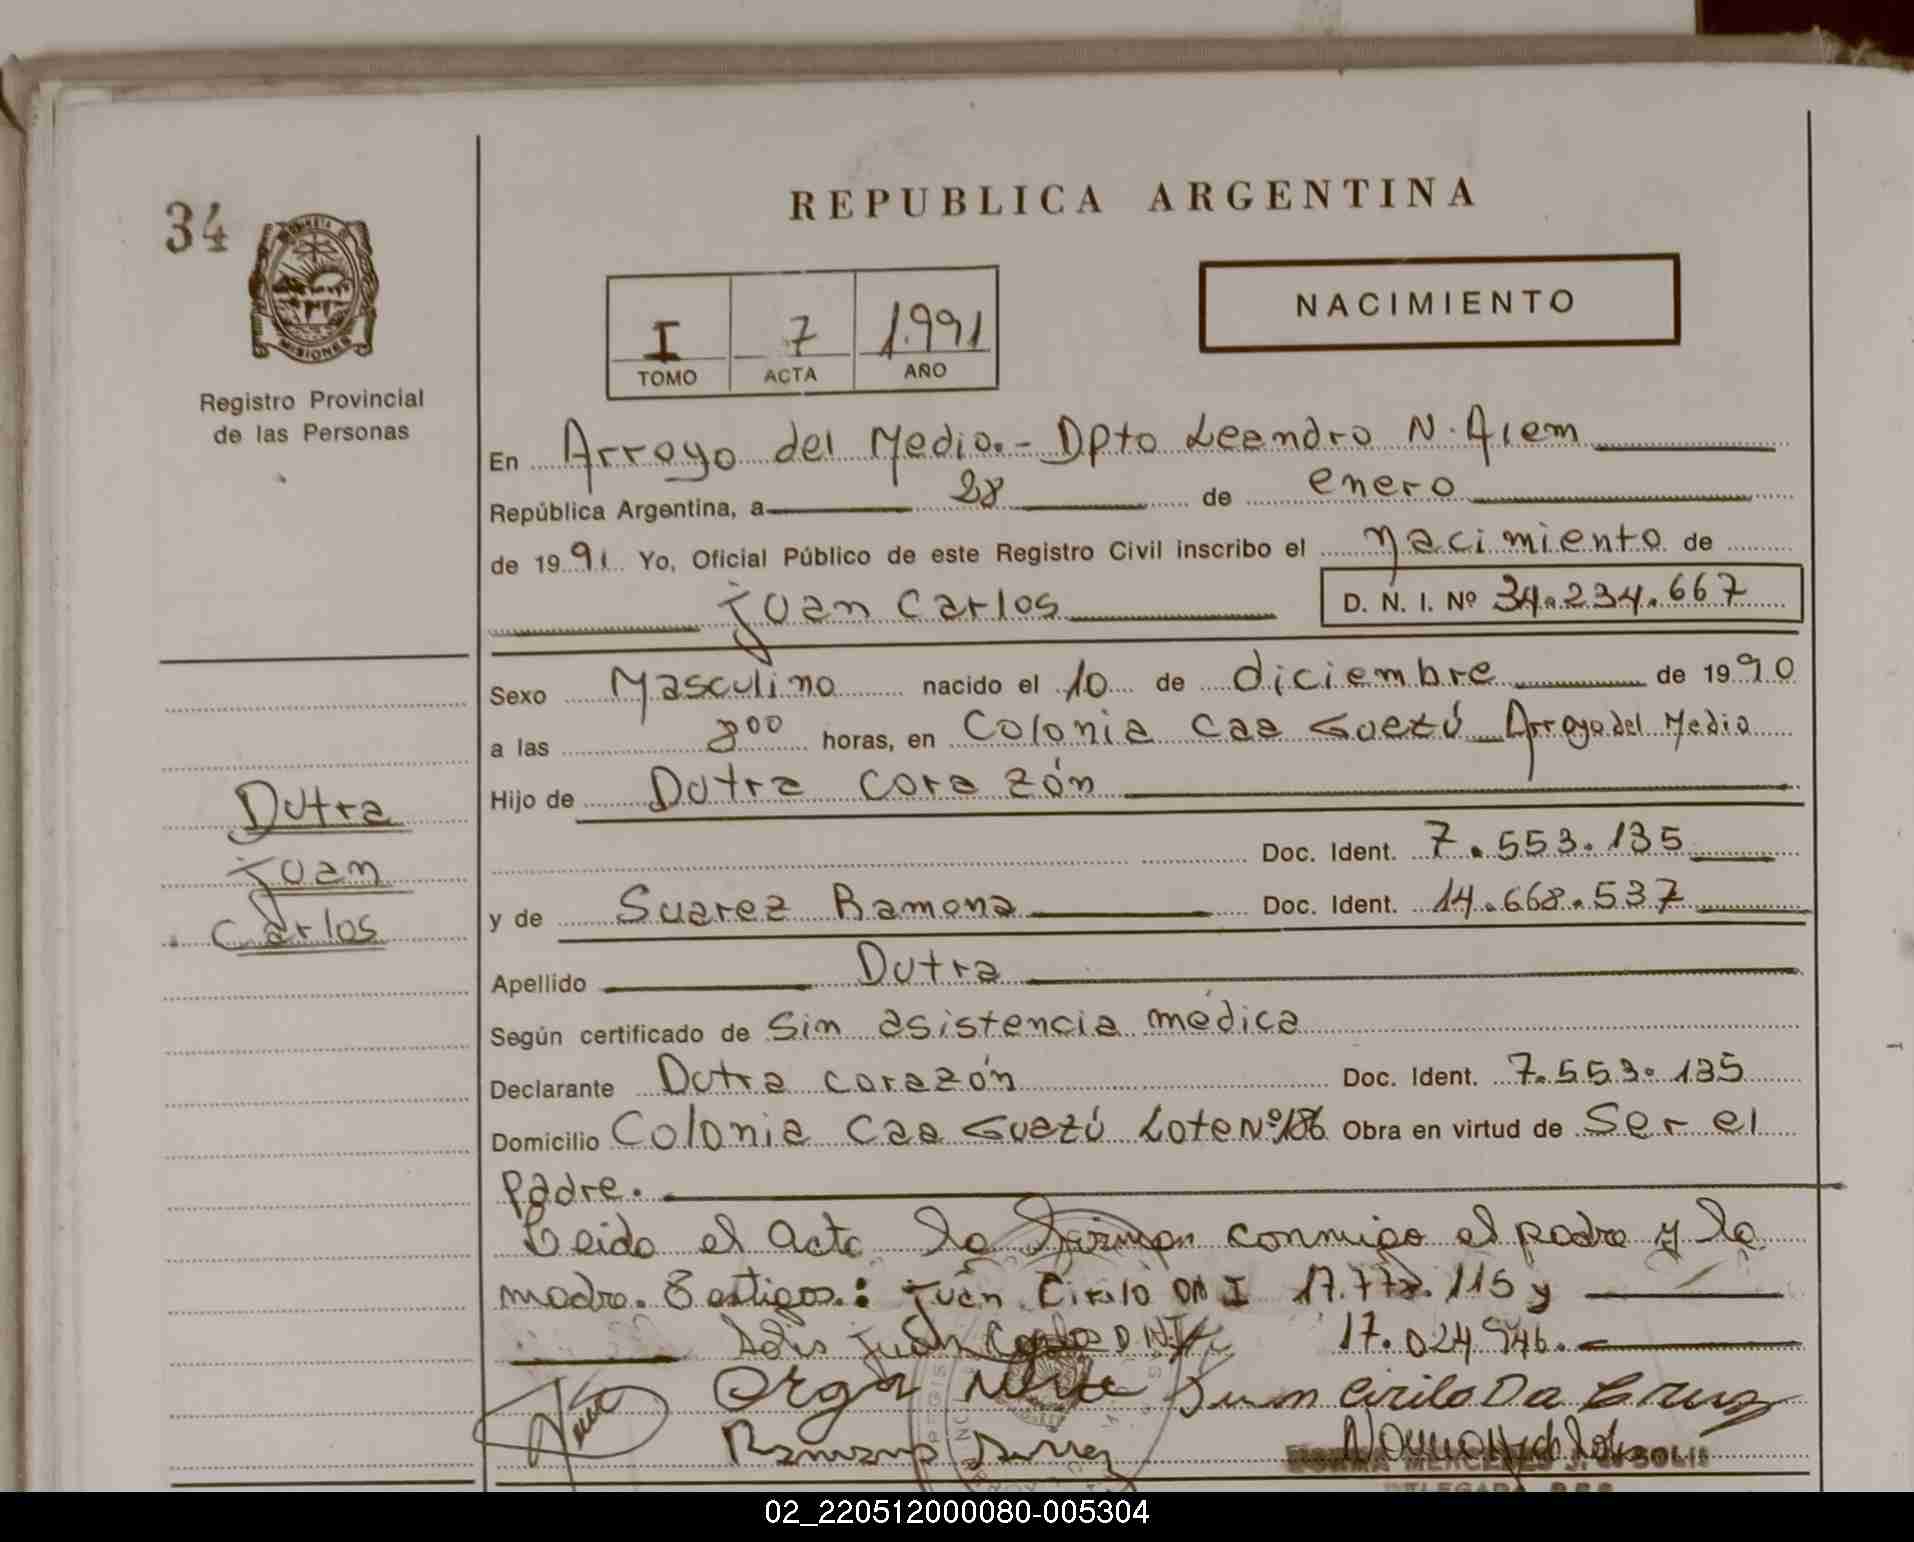 34
MISIONES
Registro Provincial
de las Personas
REPUBLICA ARGENTINA
I 7 1.991
TOMO ACTA AÑO
NACIMIENTO
En Arroyo del Medio.- Dpto Leandro N. Alem
República Argentina, a 28 de enero
de 1991 Yo, Oficial Público de este Registro Civil inscribo el nacimiento de
Juan Carlos D. N. I. Nº 34.234.667
Sexo Masculino nacido el 10 de diciembre de 1990
a las 8⁰⁰ horas, en Colonia Caa Guazú Arroyo del Medio
Hijo de Dutra Corazón
Doc. Ident. 7.553.135
y de Suarez Ramona Doc. Ident. 14.668.537
Apellido Dutra
Según certificado de Sin asistencia médica
Declarante Dutra Corazón Doc. Ident. 7.553.135
Domicilio Colonia Caa Guazú Lote Nº 186 Obra en virtud de Ser el
Padre.
Dutra
Juan
Carlos
Leida el acta la firman conmigo el padre y la
madre. Testigos: Juan Cirilo DNI 17.772.115 y
Solis Juan Carlos D.N.I. 17.024.946.
Juan Cirilo Da Cruz
Ramona Suarez
NORMA MERCEDES J. de SOLIS
DELEGADA
02_220512000080-005304